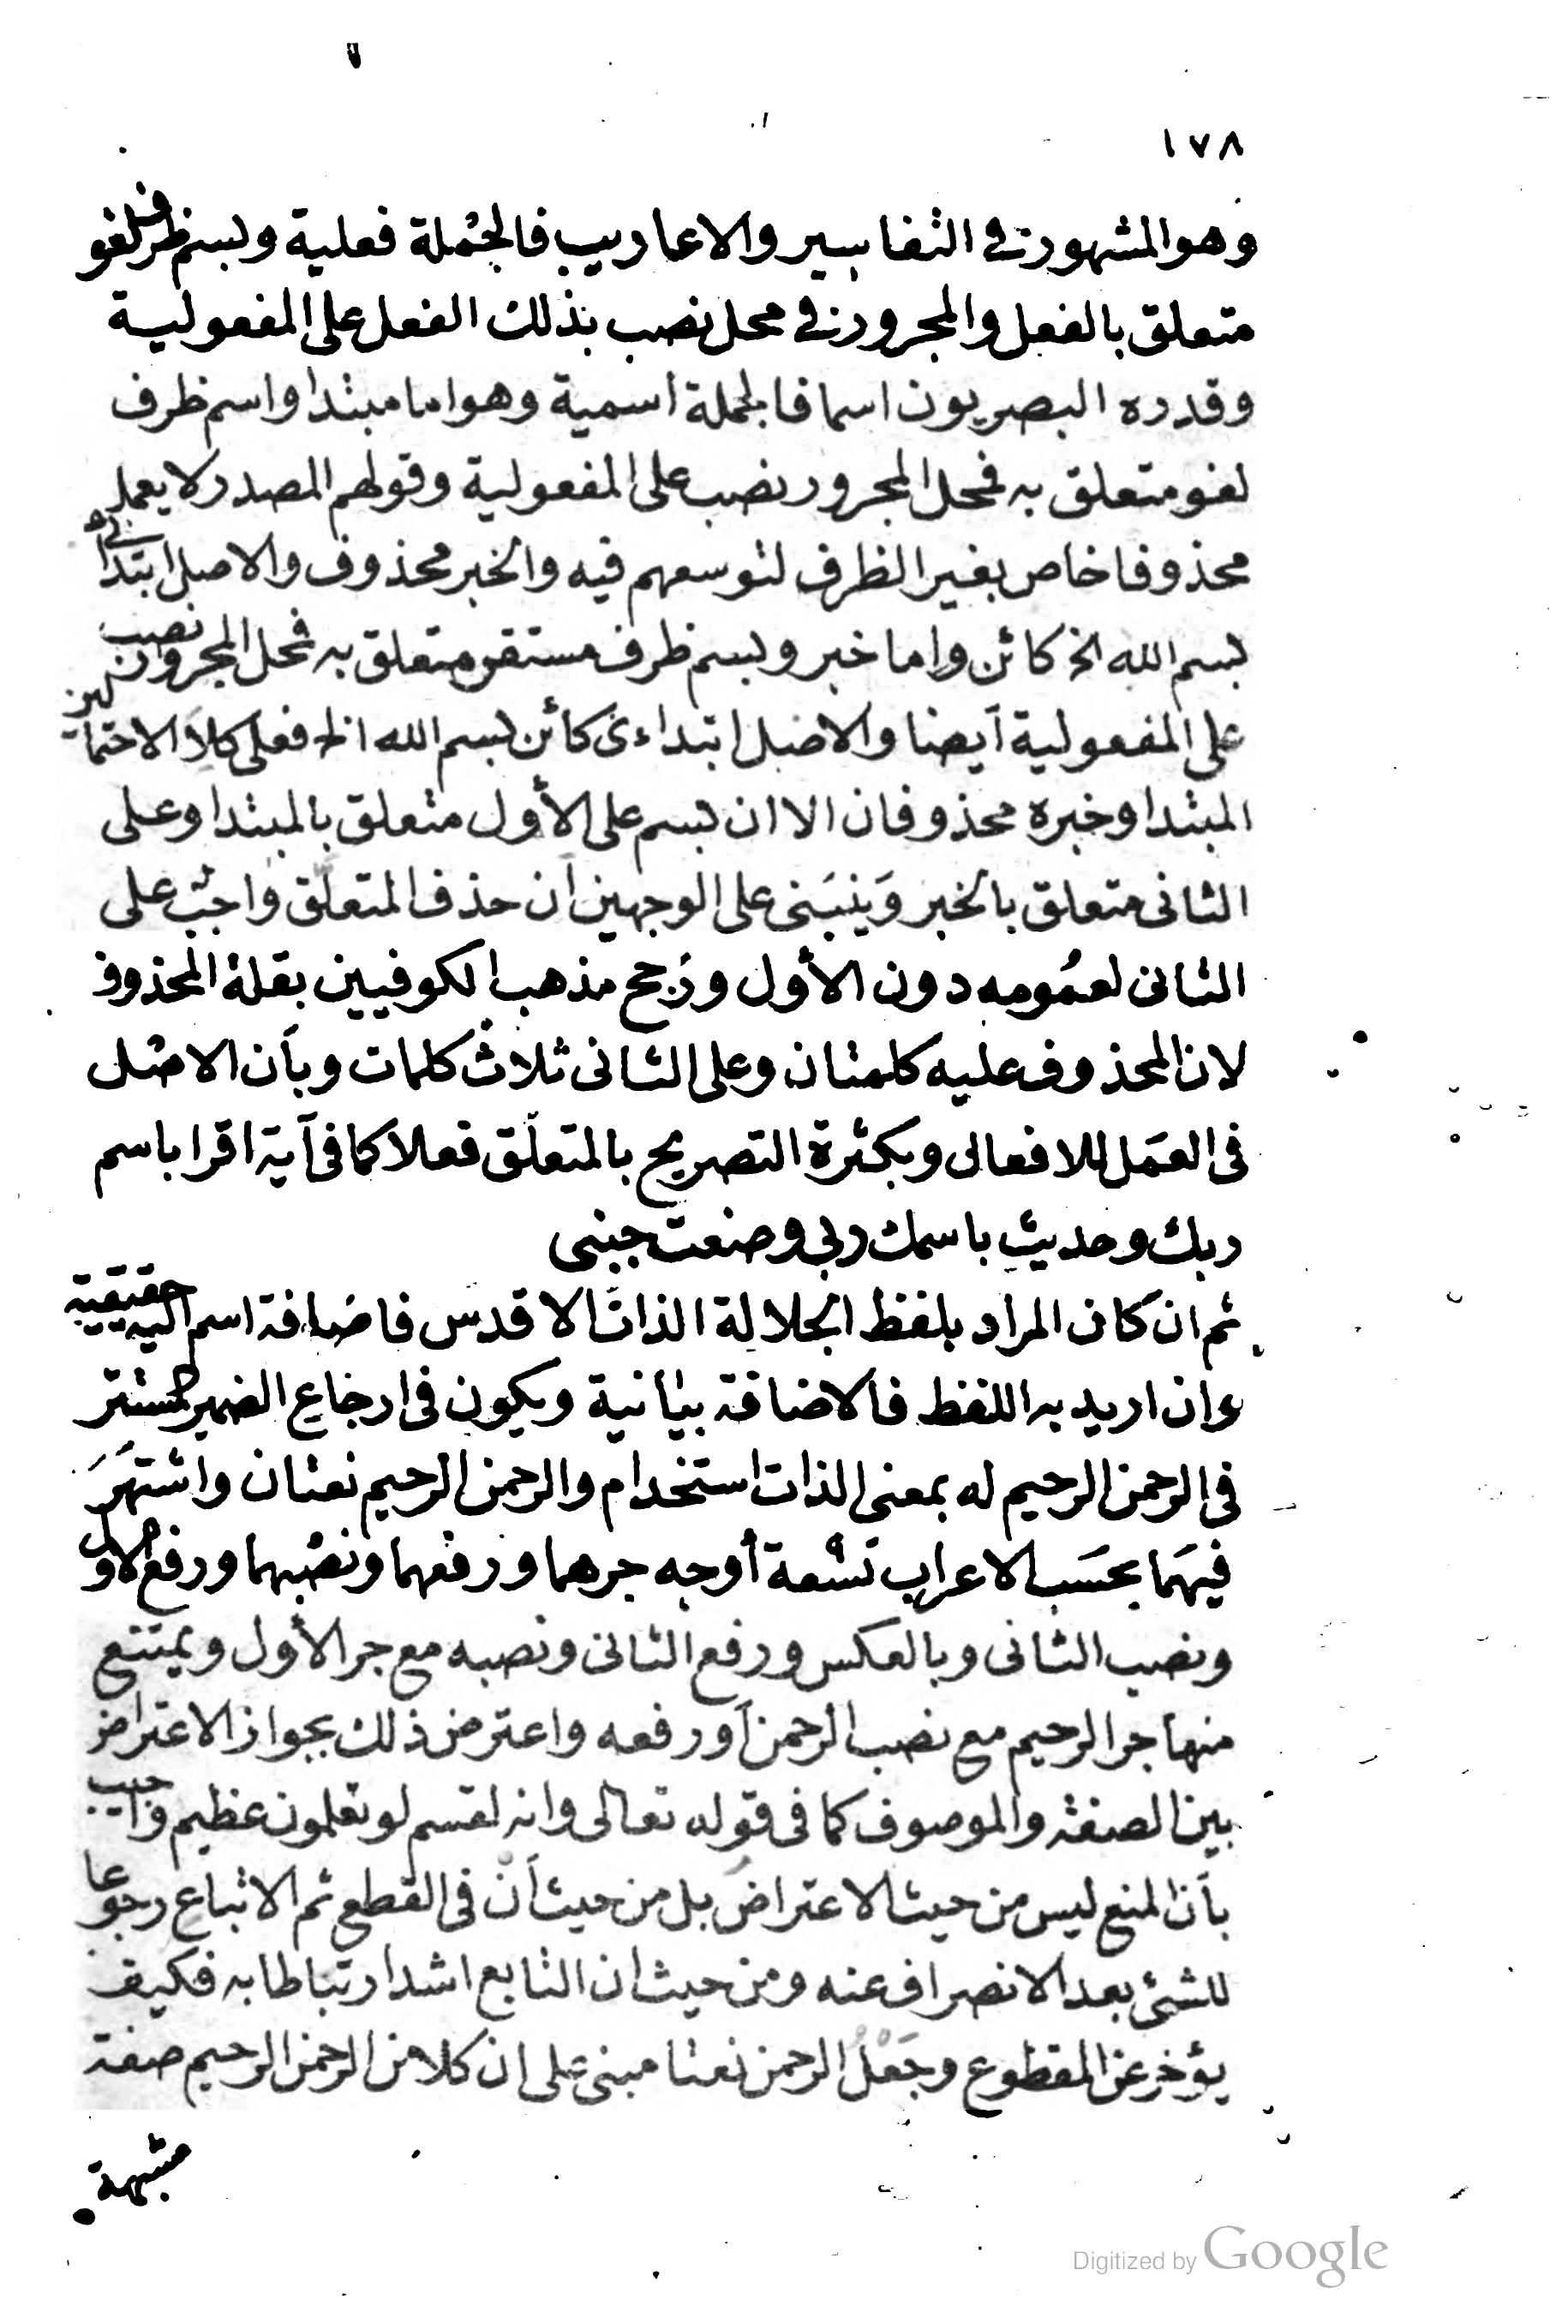 ١٧٨
وهو المشهور في التفاسير والاعاريب فالجملة فعلية وبسم ظرف لغو
متعلق بالفعل والمجرور في محل نصب بذلك الفعل على المفعولية
وقدره البصريون اسما فالجملة اسمية وهو اما مبتدا واسم ظرف
لغو متعلق به فمحل المجرور نصب على المفعولية وقولهم المصدر لا يعمل
محذوفا خاص بغير الظرف لتوسعهم فيه والخبر محذوف والاصل ابتدائي
بسم الله الخ كائن واما خبر وبسم ظرف مستقر متعلق به فمحل المجرور نصب
على المفعولية أيضا والاصل ابتداءى كائن بسم الله الخ فعلى كلا الاحتمالين
المبتدا وخبره محذوفان الا ان بسم على الأول متعلق بالمبتدا وعلى
الثانى متعلق بالخبر وَينبَنى على الوجهين أن حذف المتعلَّق واجب على
الثانى لعمُومه دون الأول ورُجح مذهب الكوفيين بقلة المحذوف
لان المحذوف عليه كلمتان وعلى الثانى ثلاث كلمات وبأن الاصْل
فى العمَل للافعال وبكثرة التصريح بالمتعلَّق فعلا كما فى آية اقرا باسم
ربك وحديث باسمك ربى وضعت جنبى
ثم ان كان المراد بلفظ الجلالة الذات الاقدس فاضافة اسم اليه حقيقية
وان اريد به اللفظ فالاضافة بيانية ويكون فى ارجاع الضمير المستتر
فى الرحمن الرحيم له بمعنى الذات استخدام والرحمن الرحيم نعتان واشتهَرَ
فيهَما بحسَب الاعراب تسْعة أوجه جرهما ورفعهما ونصْبهما ورفع الاول
ونصب الثانى وبالعكس ورفع الثانى ونصبه مع جر الأول ويمتنع
منها جر الرحيم مع نصب الرحمن أو رفعه واعترض ذلك بجواز الاعتراض
بين الصفة والموصوف كما فى قوله تعالى وانه لقسم لو تعلمون عظيم واجيب
بأن المنع ليس من حيث الاعتراض بل من حيث أن فى القطع ثم الاتباع رجوعا
للشئ بعد الانصراف عنه ومن حيث ان التابع اشد ارتباطا به فكيف
يؤخر عن المقطوع وجَعْلُ الرحمن نعتا مبنى على ان كلا من الرحمن الرحيم صفة
مشبهة
Digitized by Google